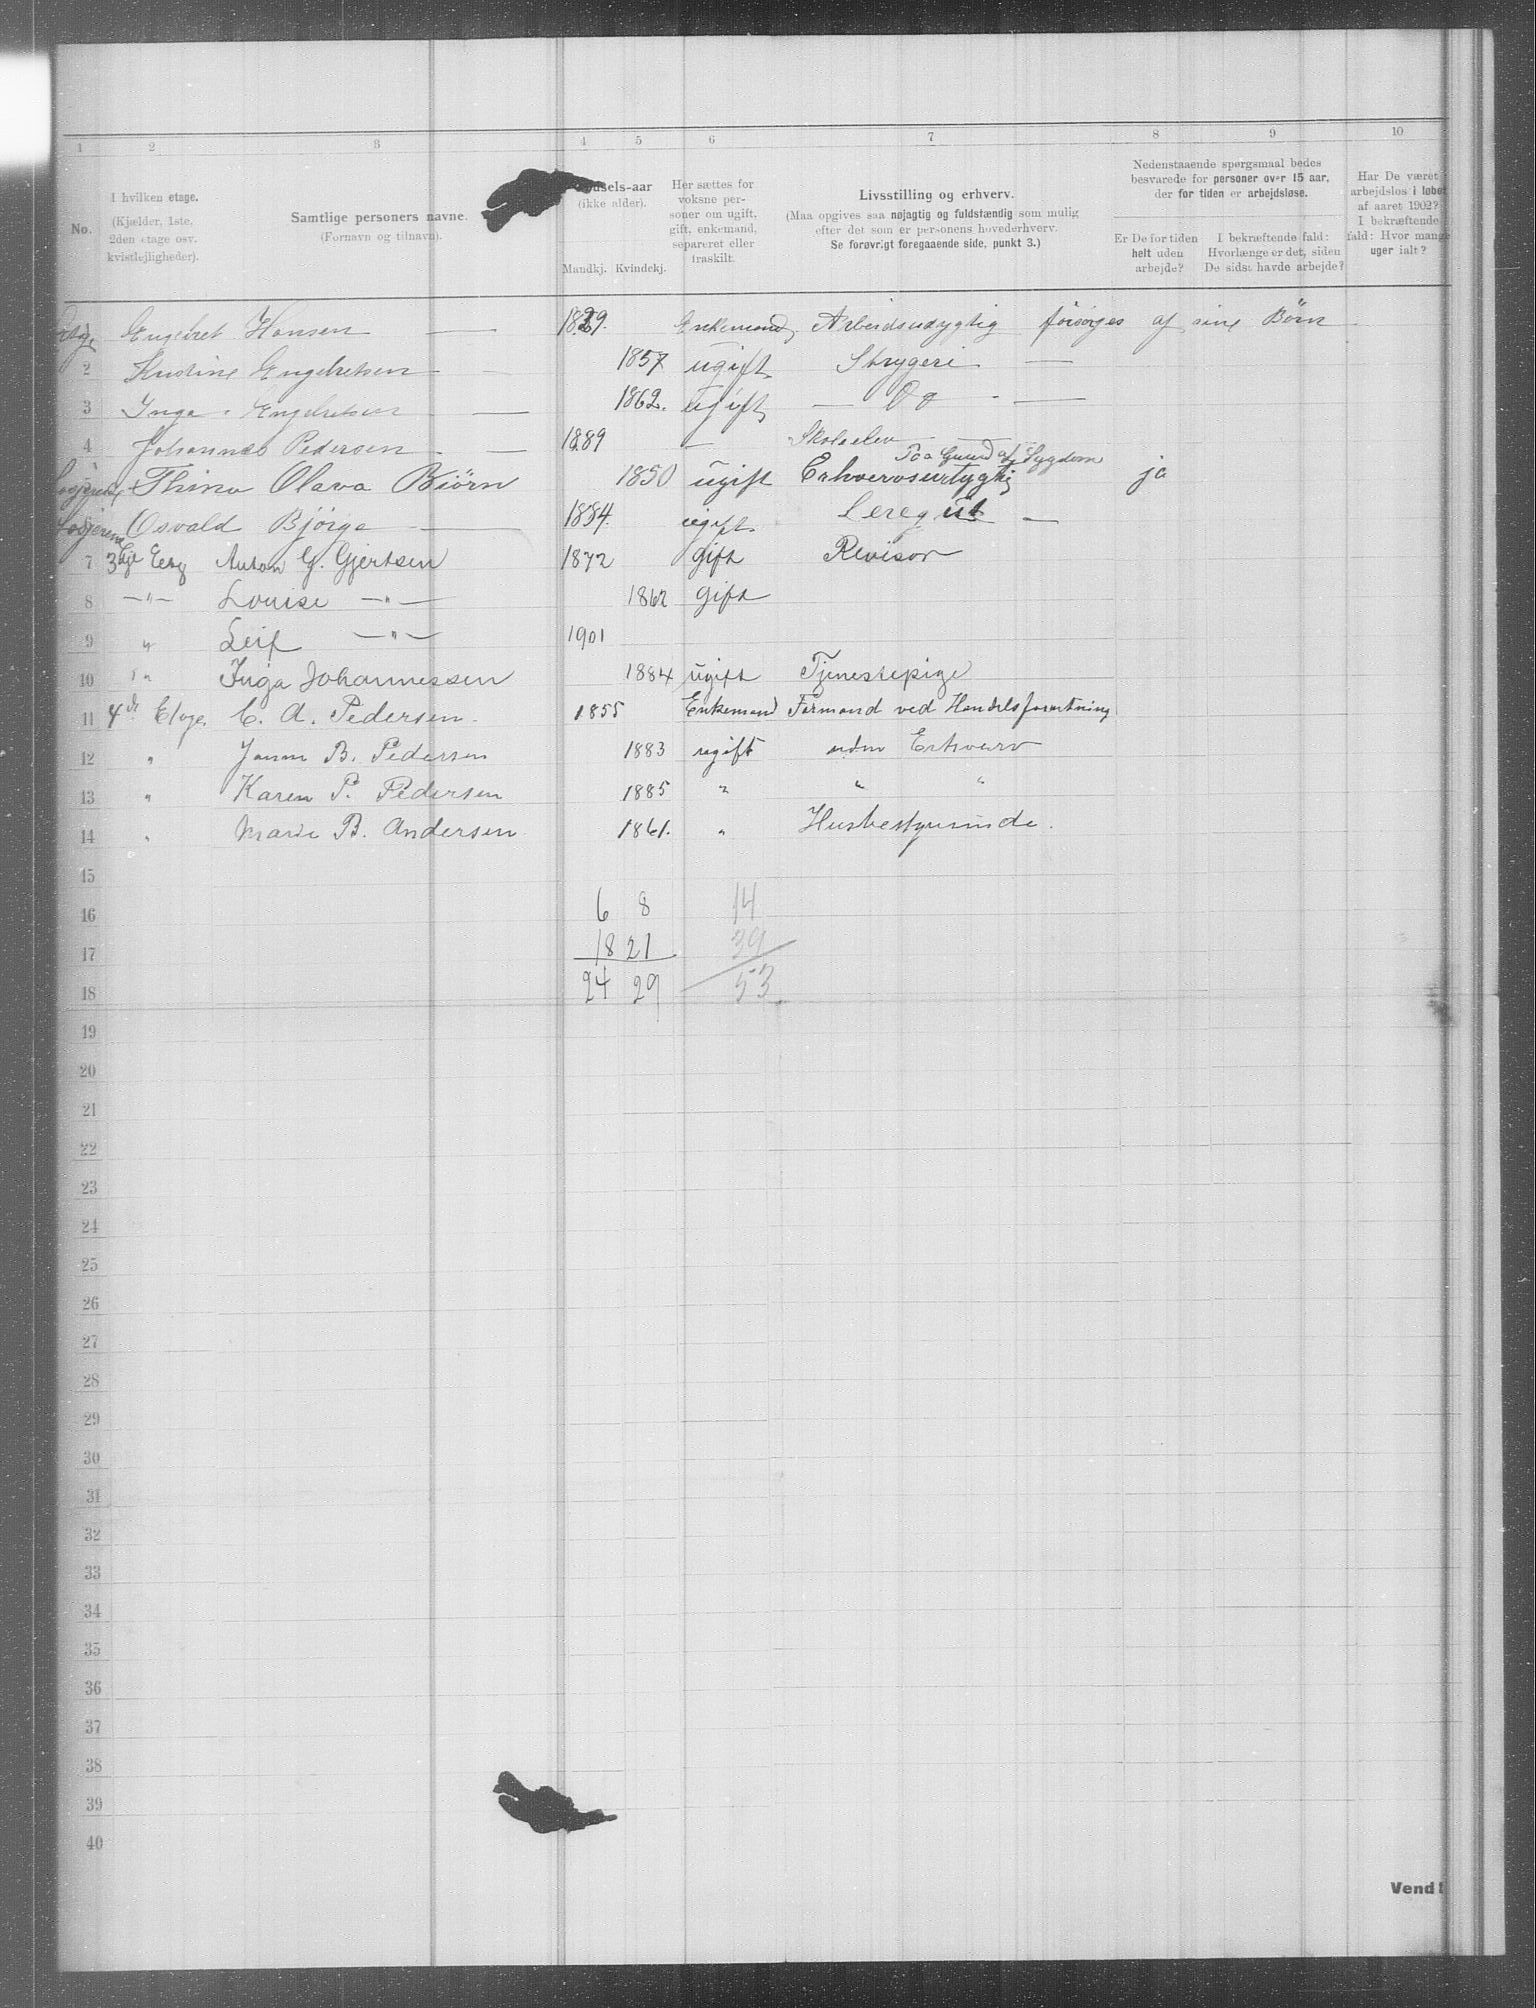 1 2 3 4 5 6 7 8 9 10
No.
I hvilken etage.
(Kjælder, 1ste,
2den etage osv.
kvistlejligheder).
Samtlige personers navne.
(Fornavn og tilnavn).
dsels-aar
(ikke alder).
Mandkj. Kvindekj.
Her sættes for
voksne per-
soner om ugift,
gift, enkemand,
separeret eller
fraskilt.
Livsstilling og erhverv.
(Maa opgives saa nøjagtig og fuldstændig som mulig
efter det som er personens hovederhverv.
Se forøvrigt foregaaende side, punkt 3.)
Nedenstaaende spørgsmaal bedes
besvarede for personer over 15 aar,
der for tiden er arbejdsløse.
Er De for tiden
helt uden
arbejde?
I bekræftende fald:
Hvorlænge er det, siden
De sidst havde arbejde?
Har De været
arbejdsløs i løbet
af aaret 1902?
I bekræftende
fald: Hvor mange
uger ialt?
1 Engebret Hansen — 1829. Enkemand Arbeidsudygtig forsørges af sine Børn
2 Kristine Engebretsen - — 1857 ugift. Strygeri —
3 Inga Engebretsen - — 1862. ugift — Do - —
4 Johannes Pedersen - — 1889 — Skoleelev —
Paa Grund af Sygdom
Logerende Thina Olava Biörn 1850 ugift Erhvervsurtygtig ja
Losjerende Osvald Bjørge — 1884. ugift. —
7 3dje Etg Anton G. Gjertsen 1872 gift Revisor
8 —"— Louise —"— 1862 gift
9 " Leif —"— 1901
10 " Inga Johannessen 1884 ugift Tjenestepige
11 4de Etage C. A. Pedersen. 1855 Enkemand Formand ved Handelsforretning
12 " B. Pedersen 1883 ugift uden Erhverv
13 " Karen P. Pedersen 1885 " " "
14 " Marie B. Andersen 1861. " Husbestyrerinde.
15
16 6 8 14
17 18 21 39
18 24 29 53
19
20
21
22
23
24
25
26
27
28
29
30
31
32
33
34
35
36
37
38
39
40
Vend!